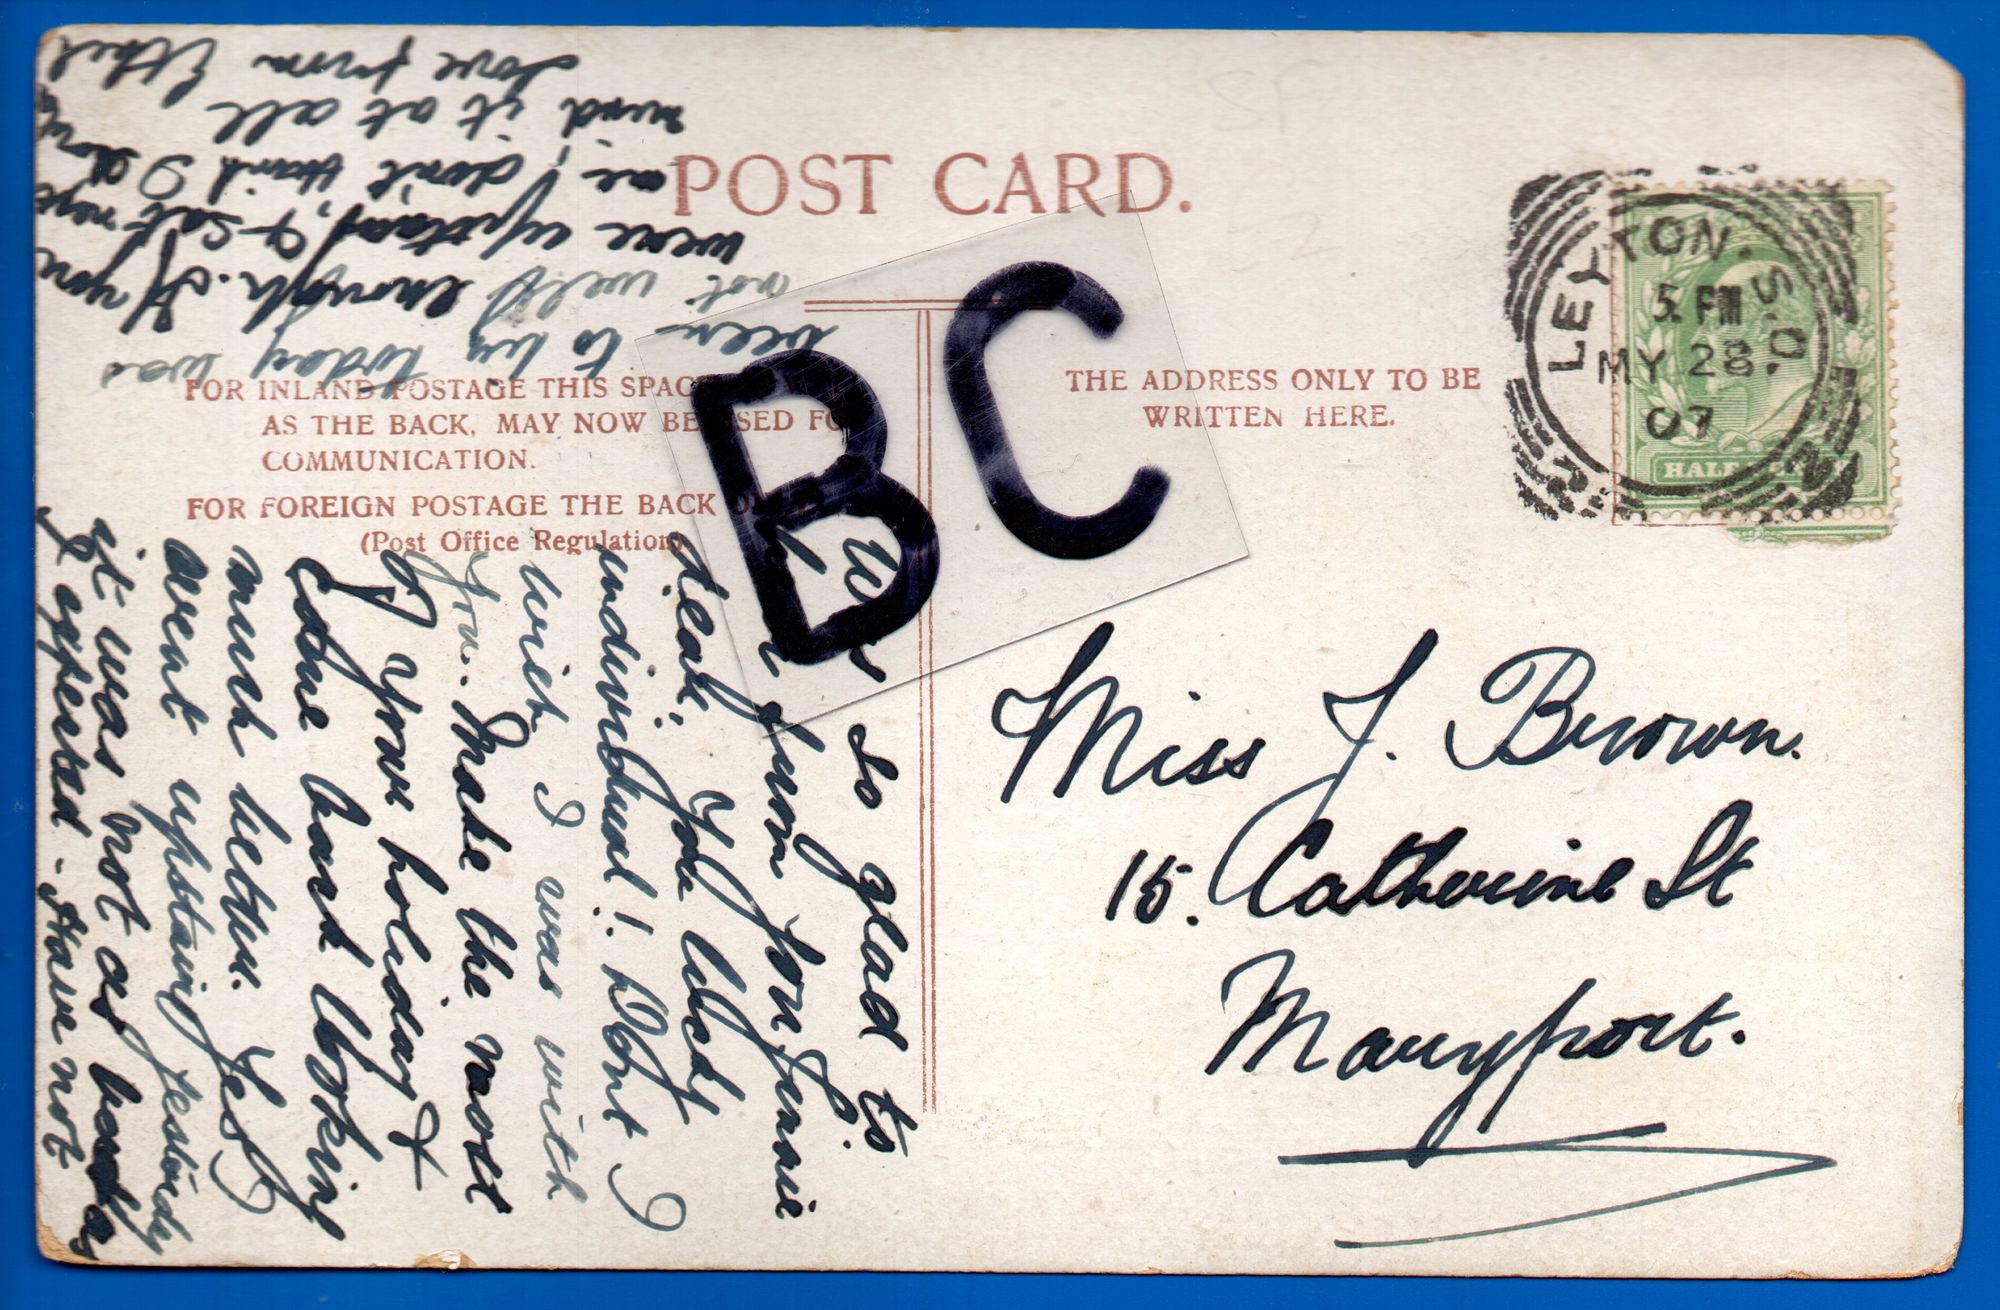 POST CARD.
FOR INLAND POSTAGE THIS SPACE
AS THE BACK, MAY NOW BE USED FO
COMMUNICATION.
FOR FOREIGN POSTAGE THE BACK
(Post Office Regulation)
THE ADDRESS ONLY TO BE
WRITTEN HERE.
BC
LEYTON. S.O.
5. PM
MY 28.
07
HALF
Miss J. Brown.
15. Catherine St
Maryport.
Was so glad to
from you Jennie
dear. You lucky
individual! Dont I
wish I was with
you. Make the most
of your holiday &
come back looking
much better. Yes I
went upstairs yesterday
it was not as bad as
I expected. Have not
been to by today was
not well enough. If you
were upstairs & sat next
me, I don't think I should
mind it at all
Love from Ethel